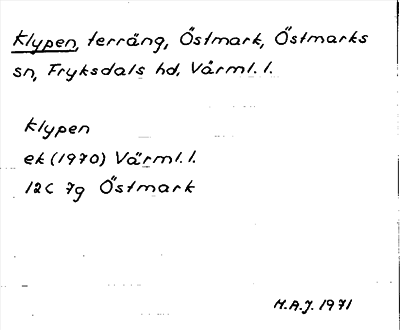 Klypen, terräng, Östmark, Östmarks
sn, Fryksdals hd, Värml. l.
Klypen
ek (1970) Värml. l.
12C 7g Östmark
H.A.J. 1971